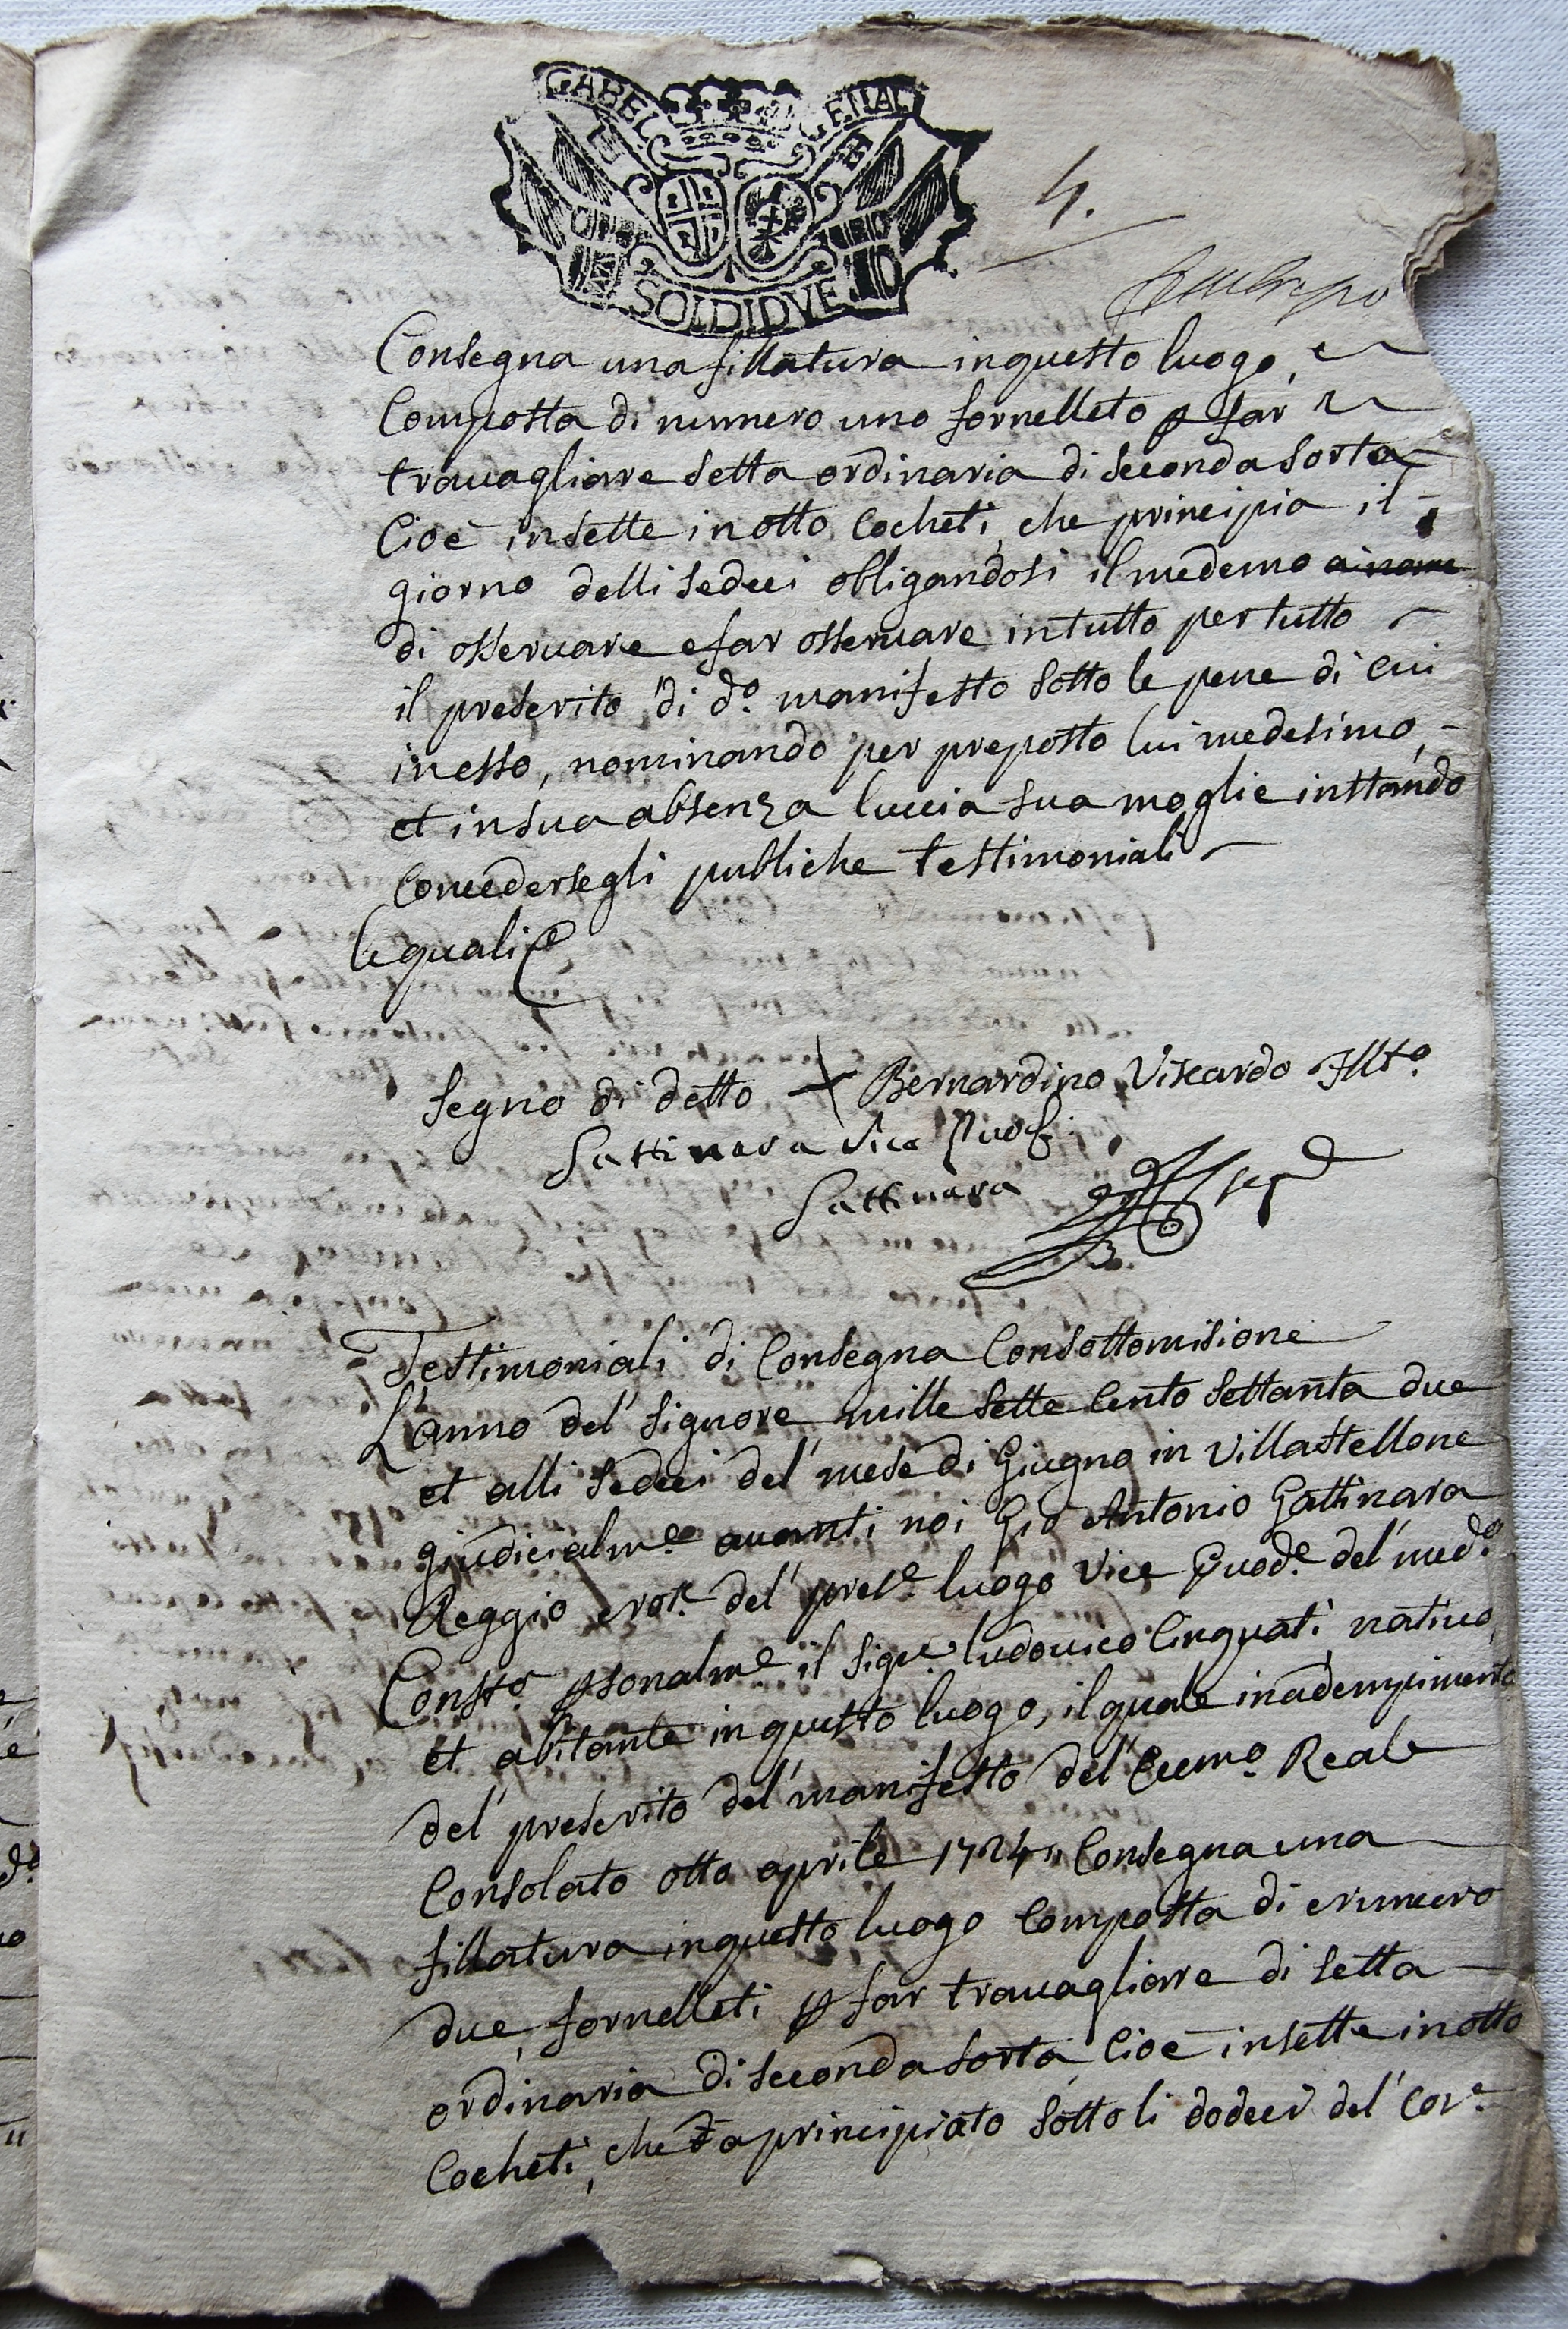 GABEL GENAL
SOLDI DVE
4.
Consegna una fillatura in questo luogo,
Composta di numero uno fornelleto p far
trauagliare setta ordinaria di seconda sorta
Cioè in sette in otto Cocheti, che principia il
giorno delli sedeci obligandosi il medemo
di osseruare e far osseruare in tutto per tutto
il prescrito di d.º manifesto sotto le pene di cui
in esso, nominando per preposto lui medesimo,
et in sua absenza luccia sua moglie instando
Concedersegli publiche testimoniali
le quali
Segno di detto + Bernardino Viscardo Illt.º
Gattinara Vice
Gattinara Seg.
Testimoniali di Consegna Con sottomisione
L'anno del' Signore mille sette Cento settanta due
et alli sedeci del' mese di Giugno in Villastellone
giudicialm.e auanti noi Gio Antonio Gattinara
Reggio del' pres.e luogo Vice del' med.º
Const.º psonalm.e il Sig.r ludouico Cinquati natiuo,
et abitante in questo luogo, il quale in adempimento
del' prescrito del' manifesto del' Ecc.mo Reale
Consolato otto aprile 1724,, Consegna una
fillatura in questo luogo Composta di numero
due, fornelleti p far trauagliare di setta
ordinaria di seconda sorta, Cioè in sette in otto
Cocheti, che à principiato sotto li dodeci del' Cor.e